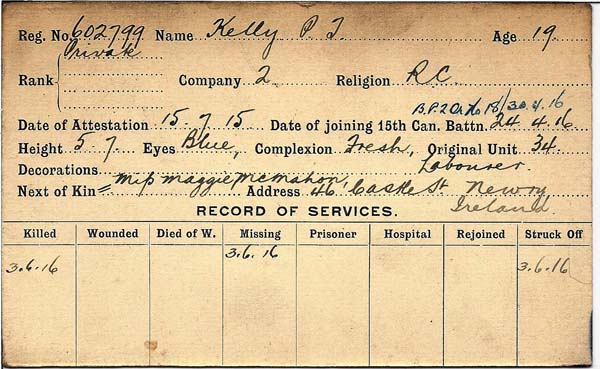 Reg. No. 602799 Name Kelly P. J. Age 19.
Private
Rank Company 2 Religion R.C.
18/30.4.16
Date of Attestation 15.7.15 Date of joining 15th Can. Battn. 24.4.16
Height 5.7. Eyes Blue, Complexion Fresh, Original Unit 34.
Decorations Labourer.
Next of Kin= Miss Maggie McMahon, Address 46, Castle St Newry
Ireland.
RECORD OF SERVICES.
Killed Wounded Died of W. Missing Prisoner Hospital Rejoined Struck Off
3.6.16 3.6.16 3.6.16